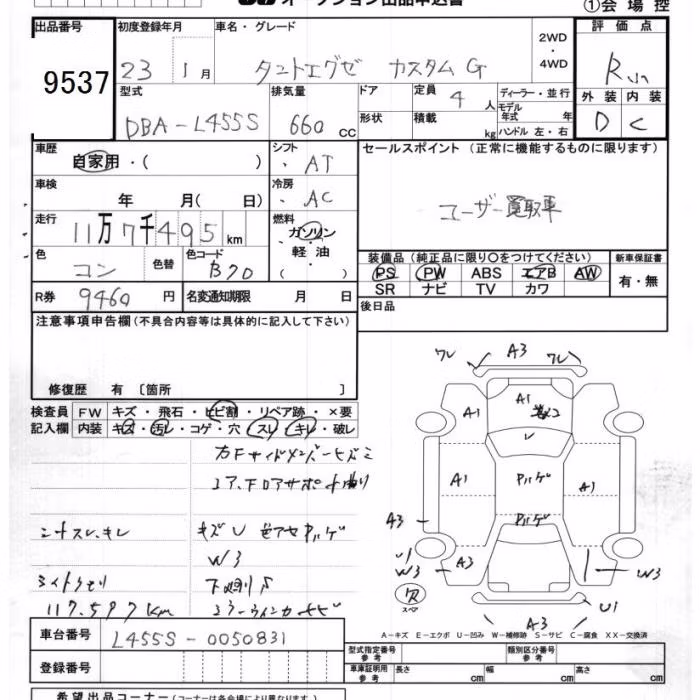 オークション出品申込書
①会場控
出品番号
9537
初度登録年月
23 1月
車名・グレード
タントエグゼ カスタム G
2WD
・
4WD
評価点
R
外装 内装
D C
型式
DBA-L455S
排気量
660 CC
ドア
形状
定員 4 人
積載 kg
ディーラー・並行
モデル年式 年
ハンドル 左・右
車歴
自家用・( )
シフト
AT
セールスポイント (正常に機能するものに限ります)
ユーザー買取車
車検
年 月( 日)
冷房
AC
走行
11万7千495km
燃料
ガソリン
・軽油・
( )
色
コン
色替
色コード
B70
装備品 (純正品に限り○をつけてください)
PS PW ABS エアB AW
SR ナビ TV カワ
新車保証書
有・無
R券 9460 円
名変通知期限 月 日
後日品
注意事項申告欄(不具合内容等は具体的に記入して下さい)
修復歴 有 〔箇所 〕
検査員記入欄
FW キズ・飛石・ヒビ割・リペア跡・×要
内装 キズ・汚レ・コゲ・穴・スレ・キレ・破レ
シートスレ、キレ
キズU
W3
ライトクモリ
117.597km
ワレ A3 ワレ
A1 A1
A1 A1
パルゲ
パルゲ
A3
U1
W3 A3
W3
欠
スペア
U1
A3
A-キズ E-エクボ U-凹み W-補修跡 S-サビ C-腐食 XX-交換済
車台番号 L455S-0050831
登録番号
型式指定番号
参考
類別区分番号
参考
車庫証明用
参考
長さ cm 幅 cm 高さ cm
希望出品コーナー (コーナーは各会場により異なります)